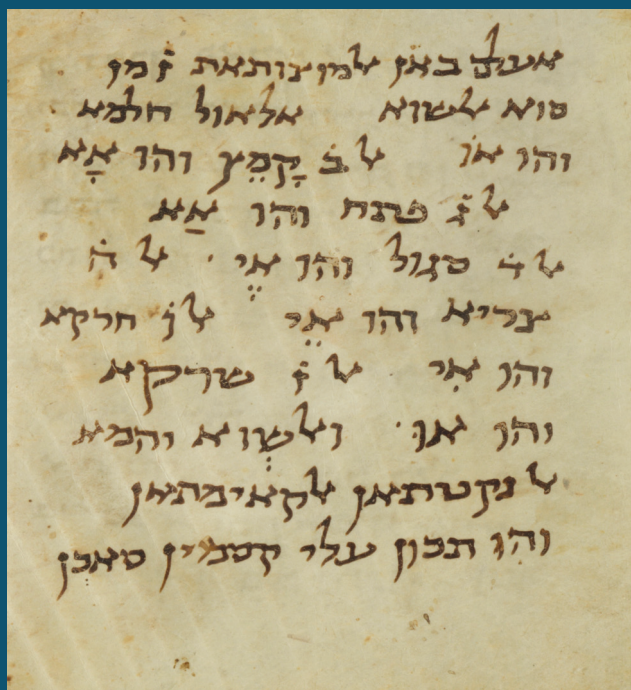 אעלם באן אלמצותאת ז̇ מן
סוא אלשוא אלאול חלמא
והו אוֹ אלב̇ קָמֵץ והו אָא
אלג̇ פתח והו אַא
אלד̇ סגול והו אֶי אלה̇
צריא והו אֵי אלו̇ חרקא
והו אִי אלז̇ שרקא
והו אוּ ואלשְוא והמא
אלנקטתאן אלקאימתאן
והו תכון עלי קסמין סאכן